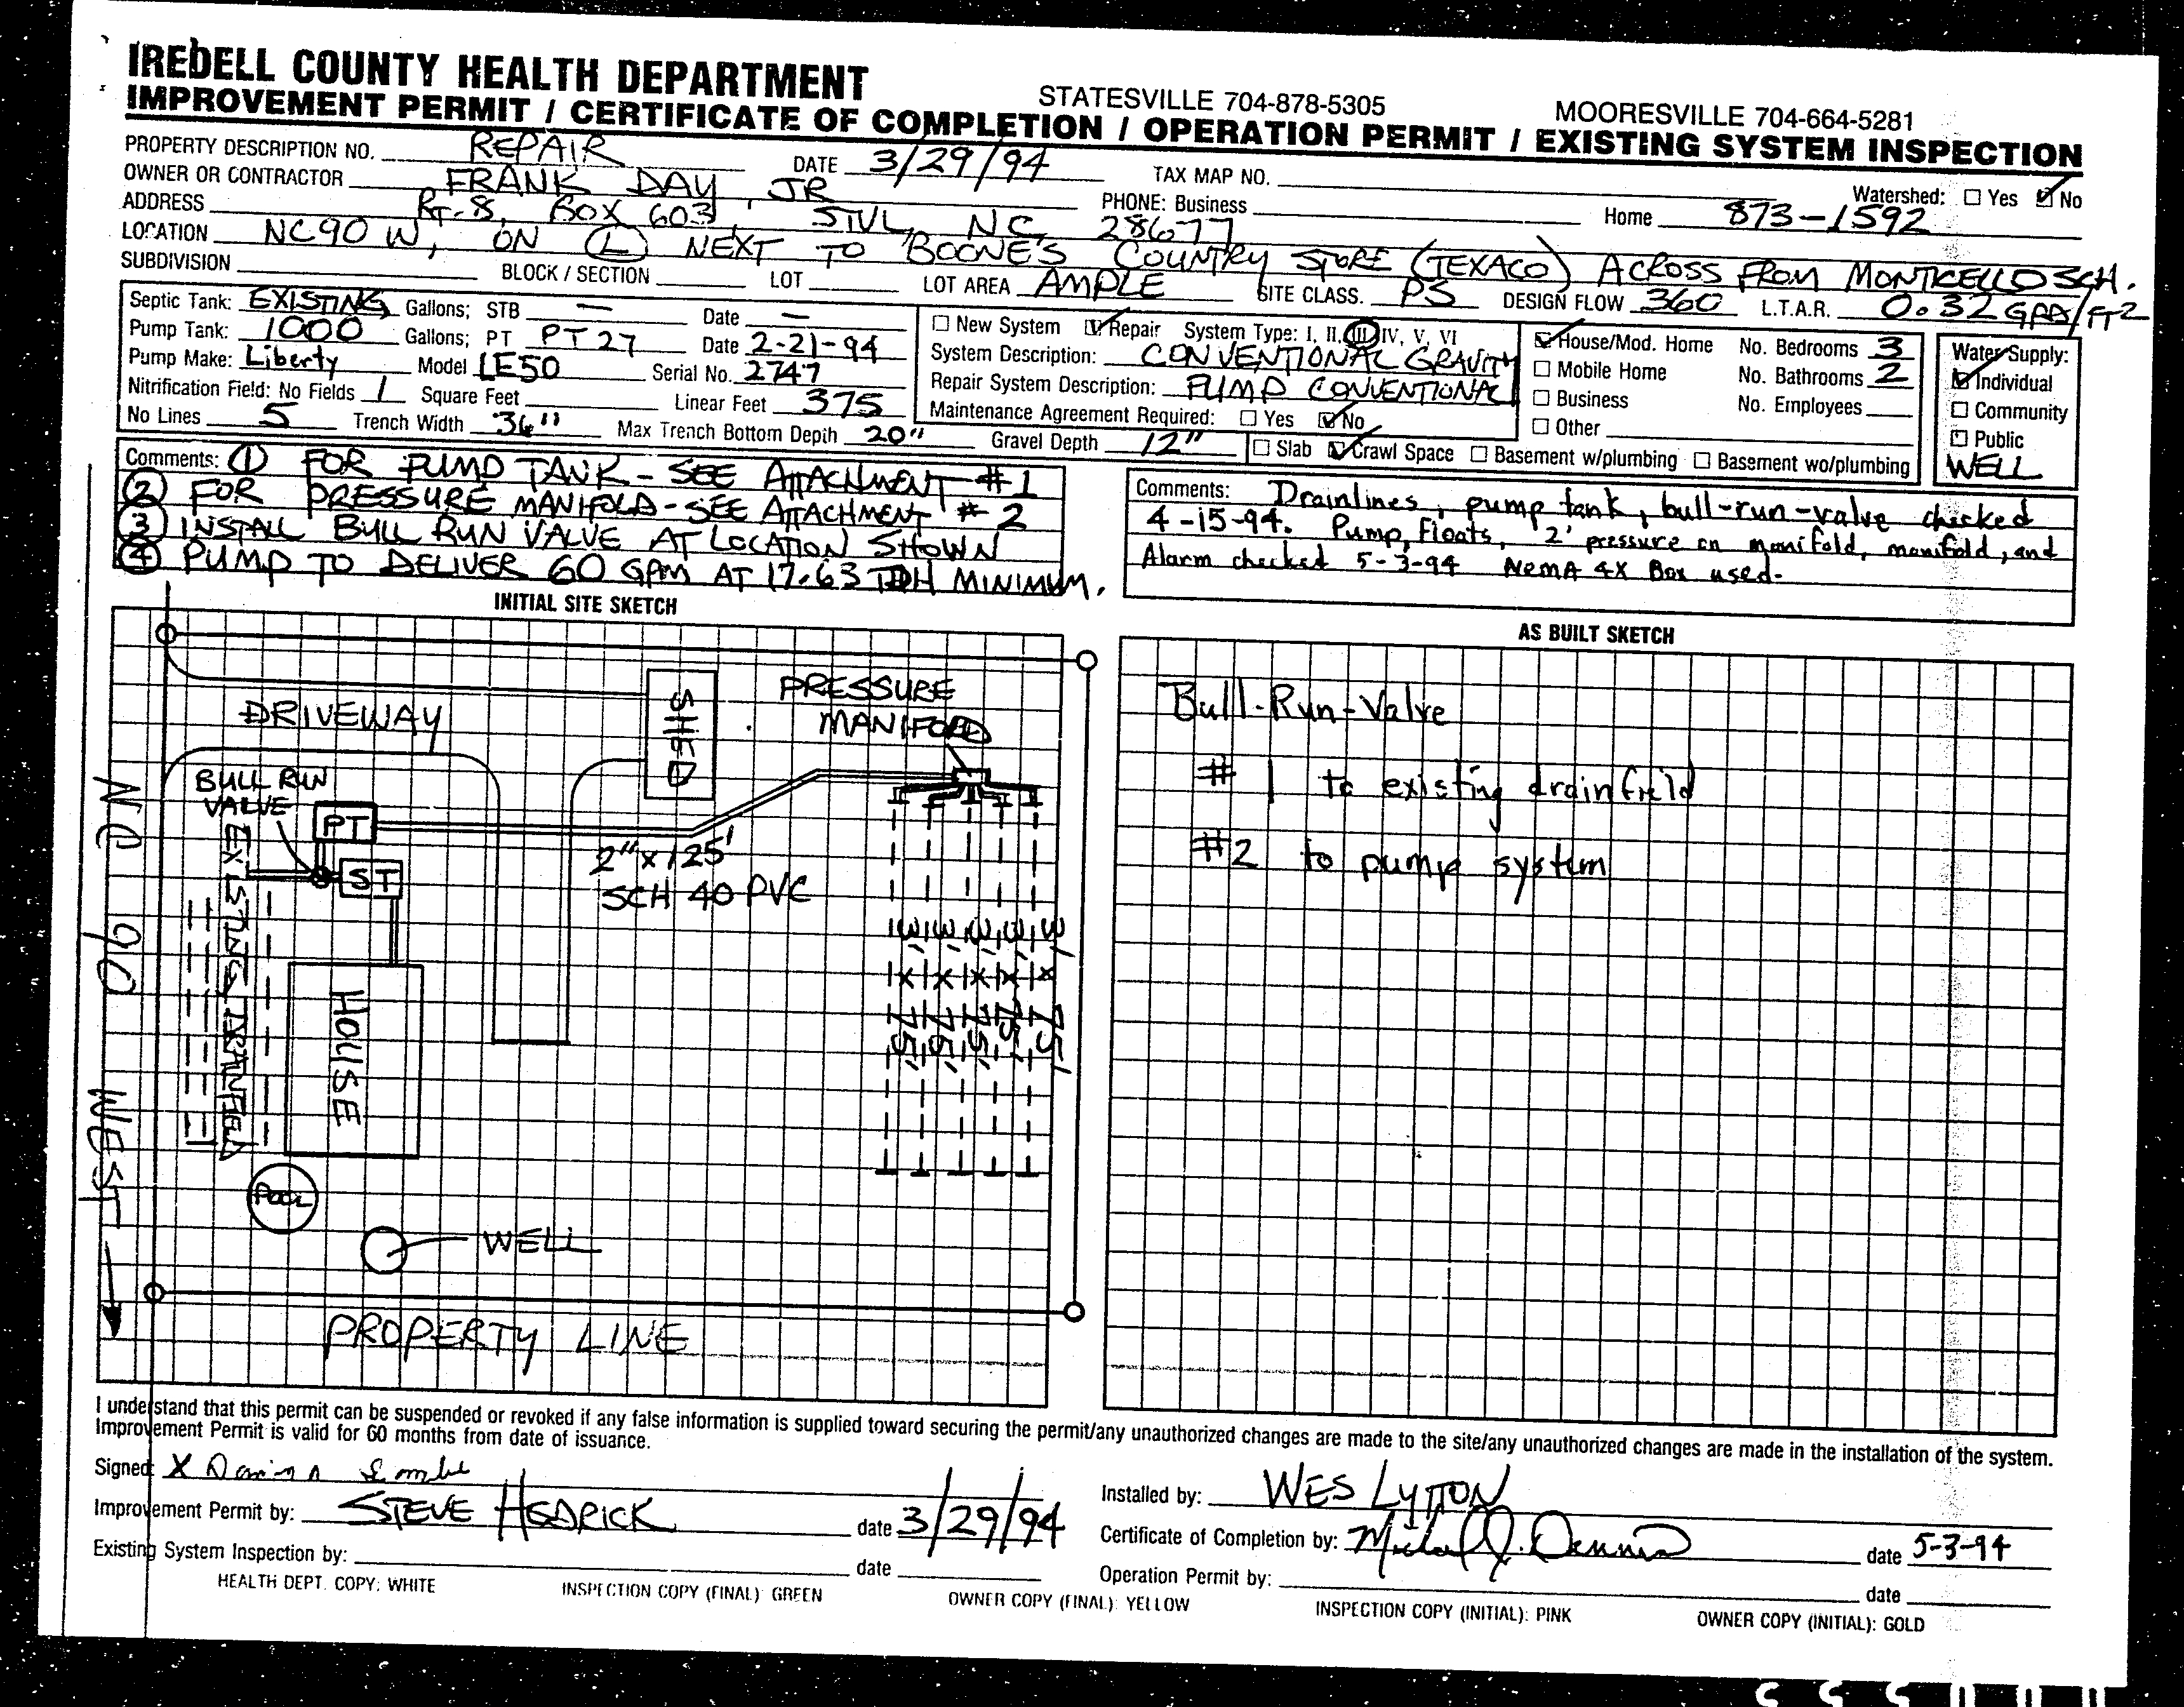 IREDELL COUNTY HEALTH DEPARTMENT
STATESVILLE 704-878-5305 MOORESVILLE 704-664-5281
IMPROVEMENT PERMIT / CERTIFICATE OF COMPLETION / OPERATION PERMIT / EXISTING SYSTEM INSPECTION
PROPERTY DESCRIPTION NO. REPAIR DATE 3/29/94 TAX MAP NO. Watershed: Yes No
OWNER OR CONTRACTOR FRANK DAY, JR PHONE: Business Home 873-1592
ADDRESS RT-8, BOX 603, STVL, NC 28677
LOCATION NC 90 W, ON (L) NEXT TO BOONE'S COUNTRY STORE (TEXACO) ACROSS FROM MONTICELLO SCH.
SUBDIVISION BLOCK / SECTION LOT LOT AREA AMPLE SITE CLASS. PS DESIGN FLOW 360 L.T.A.R. 0.32 GPD/FT2
Septic Tank: EXISTING Gallons; STB — Date —
Pump Tank: 1000 Gallons; PT PT 27 Date 2-21-94
Pump Make: Liberty Model LE50 Serial No. 2747
Nitrification Field: No Fields 1 Square Feet Linear Feet 375
No Lines 5 Trench Width 36" Max Trench Bottom Depth 20" Gravel Depth 12"
New System Repair System Type: I, II, III, IV, V, VI
System Description: CONVENTIONAL GRAVITY
Repair System Description: PUMP CONVENTIONAL
Maintenance Agreement Required: Yes No
House/Mod. Home No. Bedrooms 3
Mobile Home No. Bathrooms 2
Business No. Employees
Other
Slab Crawl Space Basement w/plumbing Basement wo/plumbing
Water Supply:
Individual
Community
Public
WELL
Comments: (1) FOR PUMP TANK - SEE ATTACHMENT #1
(2) FOR PRESSURE MANIFOLD - SEE ATTACHMENT #2
(3) INSTALL BULL RUN VALVE AT LOCATION SHOWN
(4) PUMP TO DELIVER 60 GPM AT 17.63 TDH MINIMUM.
Comments: Drainlines, pump tank, bull-run-valve checked
4-15-94. Pump, Floats, 2' pressure on manifold, manifold, and
Alarm checked 5-3-94 NEMA 4X Box used.
INITIAL SITE SKETCH
DRIVEWAY
SHED
PRESSURE
MANIFOLD
BULL RUN
VALVE
PT
ST
2" x 125'
SCH 40 PVC
EXISTING DRAINFIELD
HOUSE
3' x 75'
3' x 75'
3' x 75'
3' x 75'
3' x 75'
NC 90 WEST
POOL
WELL
PROPERTY LINE
AS BUILT SKETCH
Bull-Run-Valve
#1 to existing drainfield
#2 to pump system
I understand that this permit can be suspended or revoked if any false information is supplied toward securing the permit/any unauthorized changes are made to the site/any unauthorized changes are made in the installation of the system.
Improvement Permit is valid for 60 months from date of issuance.
Signed: X
Improvement Permit by: STEVE HEDRICK date 3/29/94
Existing System Inspection by: date
Installed by: WES LYTTON
Certificate of Completion by: Michael J. Dennis date 5-3-94
Operation Permit by: date
HEALTH DEPT. COPY: WHITE INSPECTION COPY (FINAL): GREEN OWNER COPY (FINAL): YELLOW INSPECTION COPY (INITIAL): PINK OWNER COPY (INITIAL): GOLD